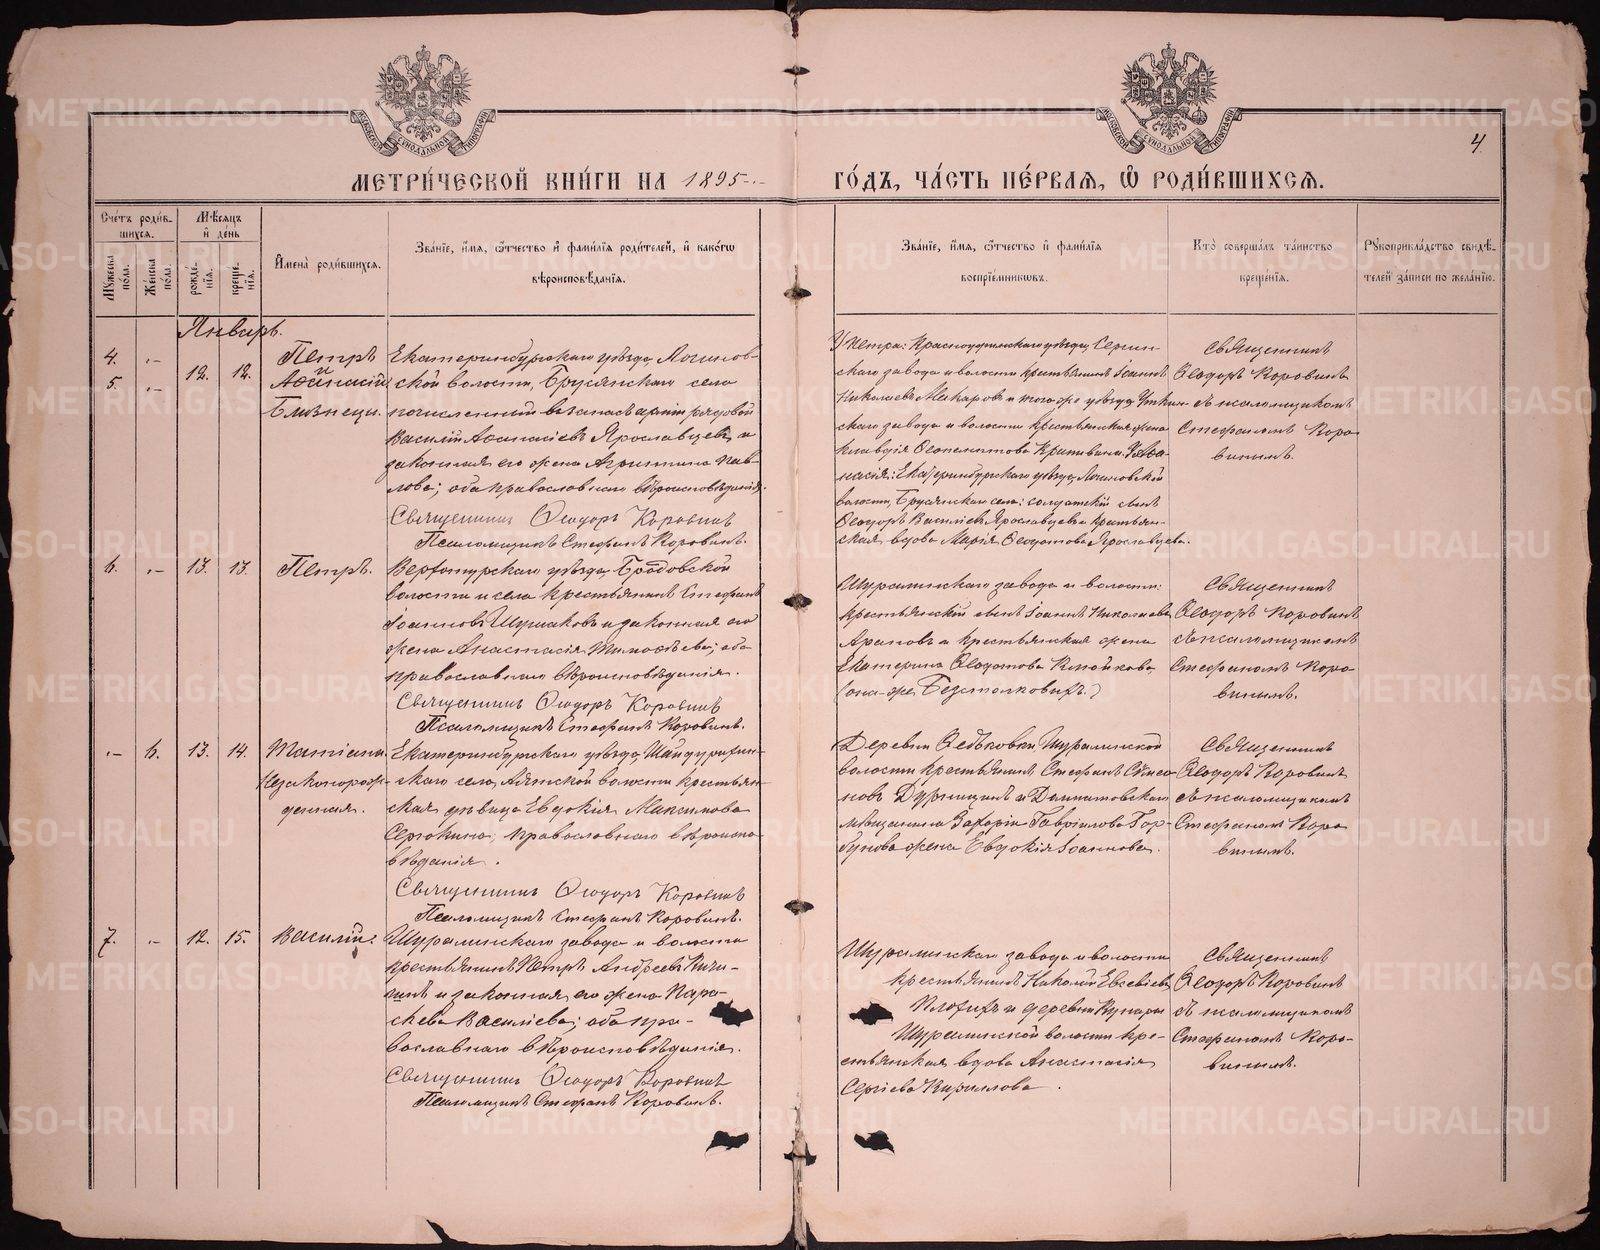 МЕТРИ́ЧЕСКОЙ КНИ́ГИ НА 1895
ГО́ДЪ, ЧА́СТЬ ПЕ́РВАЯ, Ѡ РОДИ́ВШИХСЯ.
4
Сче́тъ роди́вшихся.
Мѣ́сяцъ и҆ де́нь
Му́жеска по́ла.
Же́нска по́ла.
рожде́нїя.
креще́нїя.
И҆мена̀ роди́вшихся.
Зва́нїе, и҆́мя, ѻ҆́тчество и҆ фами́лїя роди́телей, и҆ како́гѡ
вѣроисповѣ́данїя.
Зва́нїе, и҆́мя, ѻ҆́тчество и҆ фами́лїя
воспрїе́мникѡвъ.
Кто̀ соверша́лъ та́инство
креще́нїя.
Рꙋкоприкла́дство свидѣ́-
телей за́писи по жела́нїю.
Январь.
4. 5. 12. 12.
Петръ
и
Аѳанасій
Близнецы.
Екатеринбургскаго уѣзда, Логинов-
ской волости, Брусянскаго села
почисленный въ запасъ арміи рядовой
Василій Аѳанасіевъ Ярославцевъ и
законная его жена Агриппина Пав-
лова; оба православнаго вѣроисповѣданія.
Священникъ Ѳеодоръ Коровинъ
Псаломщикъ Стефанъ Коровинъ.
У Петра: Красноуфимскаго уѣзда, Сергин-
скаго завода и волости крестьянинъ Іоаннъ
Николаевъ Макаровъ и того же уѣзда, Уткин-
скаго завода и волости крестьянская жена
Клавдія
У Аѳа-
насія: Екатеринбургскаго уѣзда, Логиновской
волости, Брусянскаго села: солдатскій сынъ
Ѳеодоръ Василіевъ Ярославцевъ и крестьян-
ская вдова Марія Ѳеодотова Ярославцева.
Священникъ
Ѳеодоръ Коровинъ
съ псаломщикомъ
Стефаномъ Коро-
винымъ.
6. 13. 13.
Петръ.
Верхотурскаго уѣзда, Бродовской
волости и села крестьянинъ Стефанъ
Іоанновъ Шушаковъ и законная его
жена Анастасія Тимоѳѣева; оба
православнаго вѣроисповѣданія.
Священникъ Ѳеодоръ Коровинъ
Псаломщикъ Стефанъ Коровинъ.
Шуралинскаго завода и волости:
крестьянскій сынъ Іоаннъ Николаевъ
Араповъ и крестьянская жена
Екатерина Ѳеодотова
(она-же Безтолковихъ.)
Священникъ
Ѳеодоръ Коровинъ
съ псаломщикомъ
Стефаномъ Коро-
винымъ.
6. 13. 14.
Татіана.
Незаконорож-
денная.
Екатеринбургскаго уѣзда, Шайдурихин-
скаго села, Аятской волости крестьян-
ская дѣвица Евдокія Максимова
Серюкина; православнаго вѣроиспо-
вѣданія.
Священникъ Ѳеодоръ Коровинъ
Псаломщикъ Стефанъ Коровинъ.
Деревни Ѳедьковки, Шуралинской
волости крестьянинъ Стефанъ Симео-
новъ Дурницинъ и Далматовскаго
мѣщанина Захаріи Гавріилова Гор-
бунова жена Евдокія Іоаннова.
Священникъ
Ѳеодоръ Коровинъ
съ псаломщикомъ
Стефаномъ Коро-
винымъ.
7. 12. 15.
Василій.
Шуралинскаго завода и волости
крестьянинъ Петръ Андреевъ Кичи-
гинъ и законная его жена Пара-
скева Василіева; оба пра-
вославнаго вѣроисповѣданія.
Священникъ Ѳеодоръ Коровинъ
Псаломщикъ Стефанъ Коровинъ.
Шуралинскаго завода и волости
крестьянинъ Николай Евсевіевъ
Плохихъ и деревни Кунары
Шуралинской волости кре-
стьянская вдова Анастасія
Сергіева Кириллова.
Священникъ
Ѳеодоръ Коровинъ
съ псаломщикомъ
Стефаномъ Коро-
винымъ.
METRIKI.GASO-URAL.RU